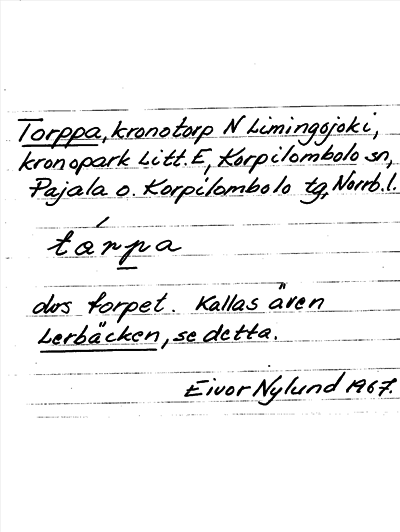 Torppa, kronotorp N Limingojoki,
kronopark Litt. E, Korpilombolo sn,
Pajala o. Korpilombolo tg, Norrb.l.
tórpa
dvs torpet. Kallas även
Lerbäcken, se detta.
Eivor Nylund 1967.